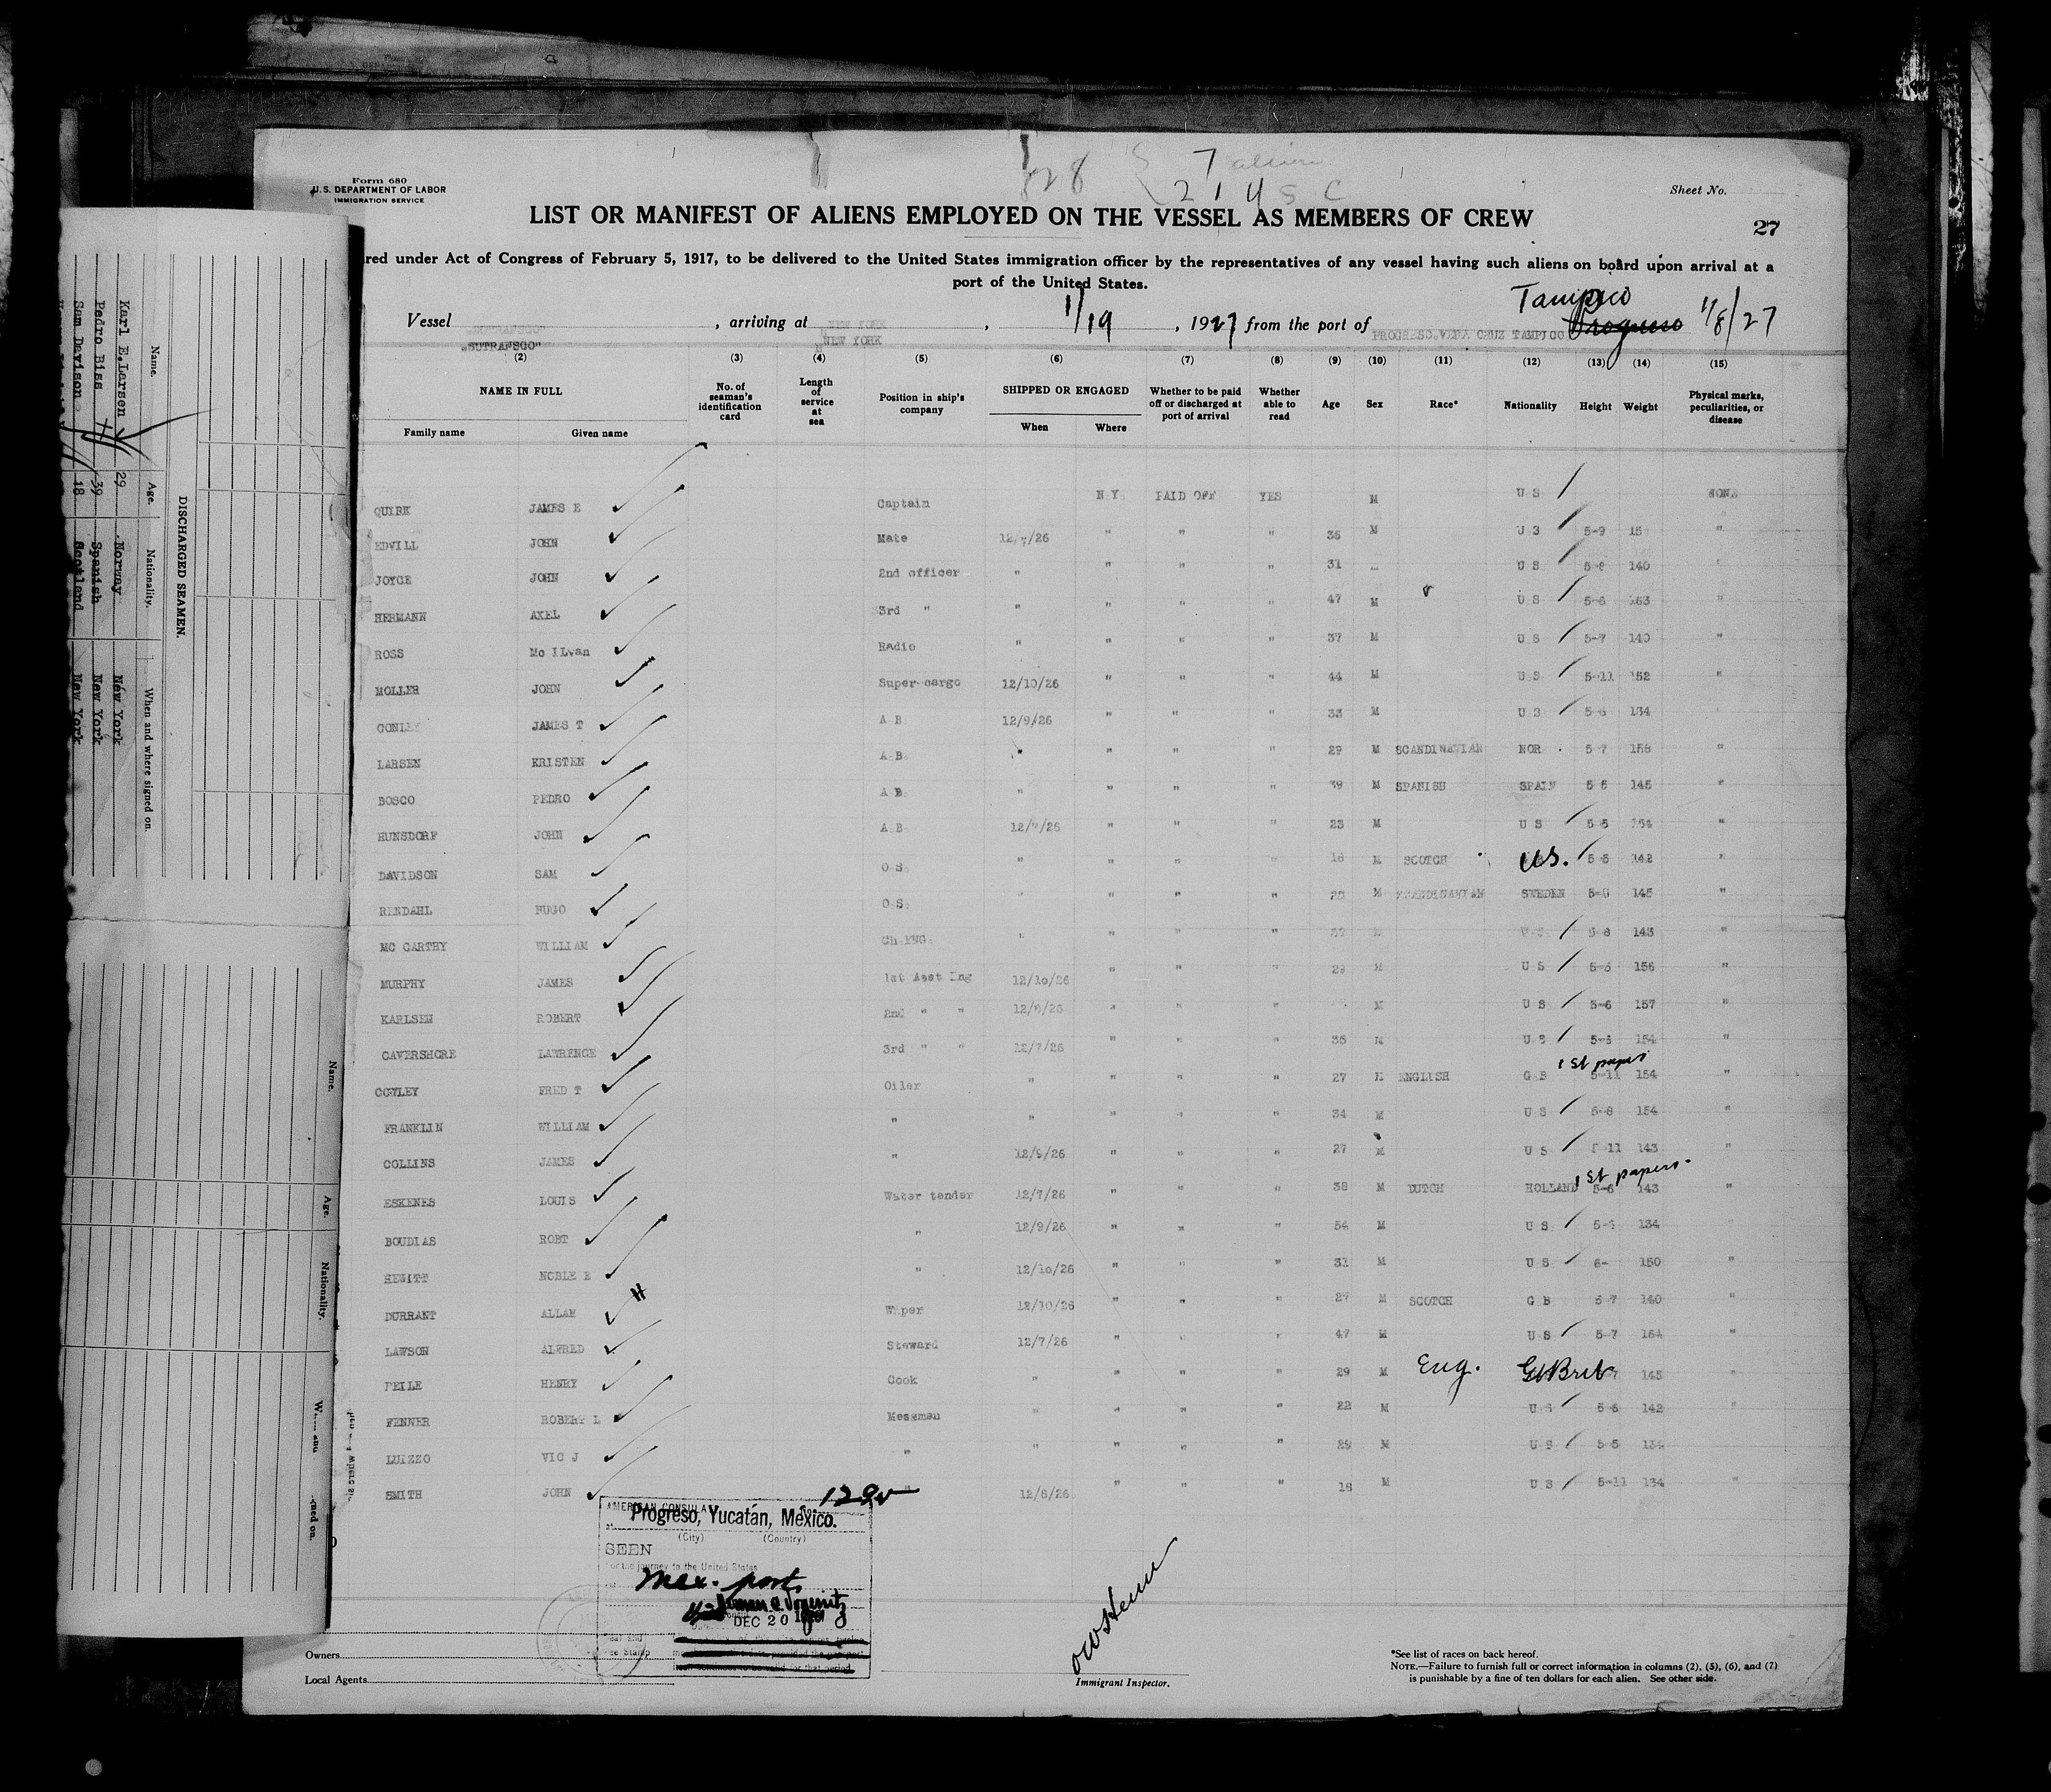 828 { 7 alien
21 U S C
Form 680
U.S. DEPARTMENT OF LABOR
IMMIGRATION SERVICE
Sheet No.
LIST OR MANIFEST OF ALIENS EMPLOYED ON THE VESSEL AS MEMBERS OF CREW
27
red under Act of Congress of February 5, 1917, to be delivered to the United States immigration officer by the representatives of any vessel having such aliens on board upon arrival at a
port of the United States.
Tampico 1/8/27
Vessel "SUTRAFSCO", arriving at NEW YORK, 1/19, 1927 from the port of PROGRESO. VERA CRUZ TAMPICO Progreso
"SUTRAFSCO" NEW YORK
(2) (3) (4) (5) (6) (7) (8) (9) (10) (11) (12) (13) (14) (15)
NAME IN FULL No. of seaman's identification card Length of service at sea Position in ship's company SHIPPED OR ENGAGED Whether to be paid off or discharged at port of arrival Whether able to read Age Sex Race* Nationality Height Weight Physical marks, peculiarities, or disease
Family name Given name When Where
QUIRK JAMES E Captain N Y. PAID OFF YES M U S NONE
EDVILL JOHN Mate 12/7/26 " " " 36 M U S 5-9 "
JOYCE JOHN 2nd officer " " " " 31 U S 140 "
HERMANN AXEL 3rd " " " " " 47 M U S 5-6 163 "
ROSS Mc ILwan Radio " " " " 37 M U S 5-7 140 "
MOLLER JOHN Super-cargo 12/10/26 " " " 44 M U S 5-11 152 "
CONLEY JAMES T A B 12/9/26 " " " 33 M U S 134
LARSEN KRISTEN A B " " " " 29 M SCANDINAVIAN NOR. 5-7 156 "
BOSCO PEDRO A B " " " " 39 M SPANISH SPAIN 5-5 145 "
HUNSDORF JOHN A B 12/9/26 " " " 23 M U S 5-5 154 "
DAVIDSON SAM O S " " " " 18 M SCOTCH U.S. 5-5 142 "
RENDAHL HUGO O S " " " " M SCANDINAVIAN SWEDEN 145 "
MC CARTHY WILLIAM Ch.ENG. " " " " U S 5-8 143 "
MURPHY JAMES 1st Asst Eng 12/10/26 " " " 29 M U S 156 "
KARLSEN ROBERT 2nd " " " " " M U S 5-6 157 "
CAVERSHORE LAWRENCE 3rd " " 12/7/26 " " " 36 M U S 154 "
COWLEY FRED T Oiler " " " " 27 M ENGLISH G B 1st paper 5-11 154 "
FRANKLIN WILLIAM " " " " " 34 M U S 5-8 154 "
COLLINS JAMES " 12/9/26 " " " 27 M U S 11 143 "
ESKENES LOUIS Water tender 12/7/26 " " " 38 M DUTCH HOLLAND 1st papers. 5-6 143 "
BOUDIAS ROBT " 12/9/26 " " " 54 M U S 134 "
HEWITT NOBLE E " 12/10/26 " " " 31 M U S 6- 150 "
DURRANT ALLAN H Wiper 12/10/26 " " " 27 M SCOTCH G B 5-7 140 "
LAWSON ALFRED Steward 12/7/26 " " " 47 M U S 5-7 164 "
PEILE HENRY Cook " " " " 29 M Eng. Gt Brit 145 "
FENNER ROBERT L Messman " " " " 22 M U S 142 "
LUIZZO VIC J " " " " " 29 M U S 5-5 134 "
SMITH JOHN " 12/8/26 " " " 18 M U S 5-11 134 "
AMERICAN CONSULA
Progreso, Yucatán, México.
(City) (Country)
SEEN
For the journey to the United States
Mex. port
DEC 20 1926
Owners
Local Agents
Immigrant Inspector.
*See list of races on back hereof.
NOTE.—Failure to furnish full or correct information in columns (2), (5), (6), and (7)
is punishable by a fine of ten dollars for each alien. See other side.
DISCHARGED SEAMEN.
Name. Age. Nationality. When and where signed on.
Karl E.Larsen 29 Norway New York
Pedro Biss 39 Spanish New York
Sam Davison 18 Scotland New York
Name. Age. Nationality.